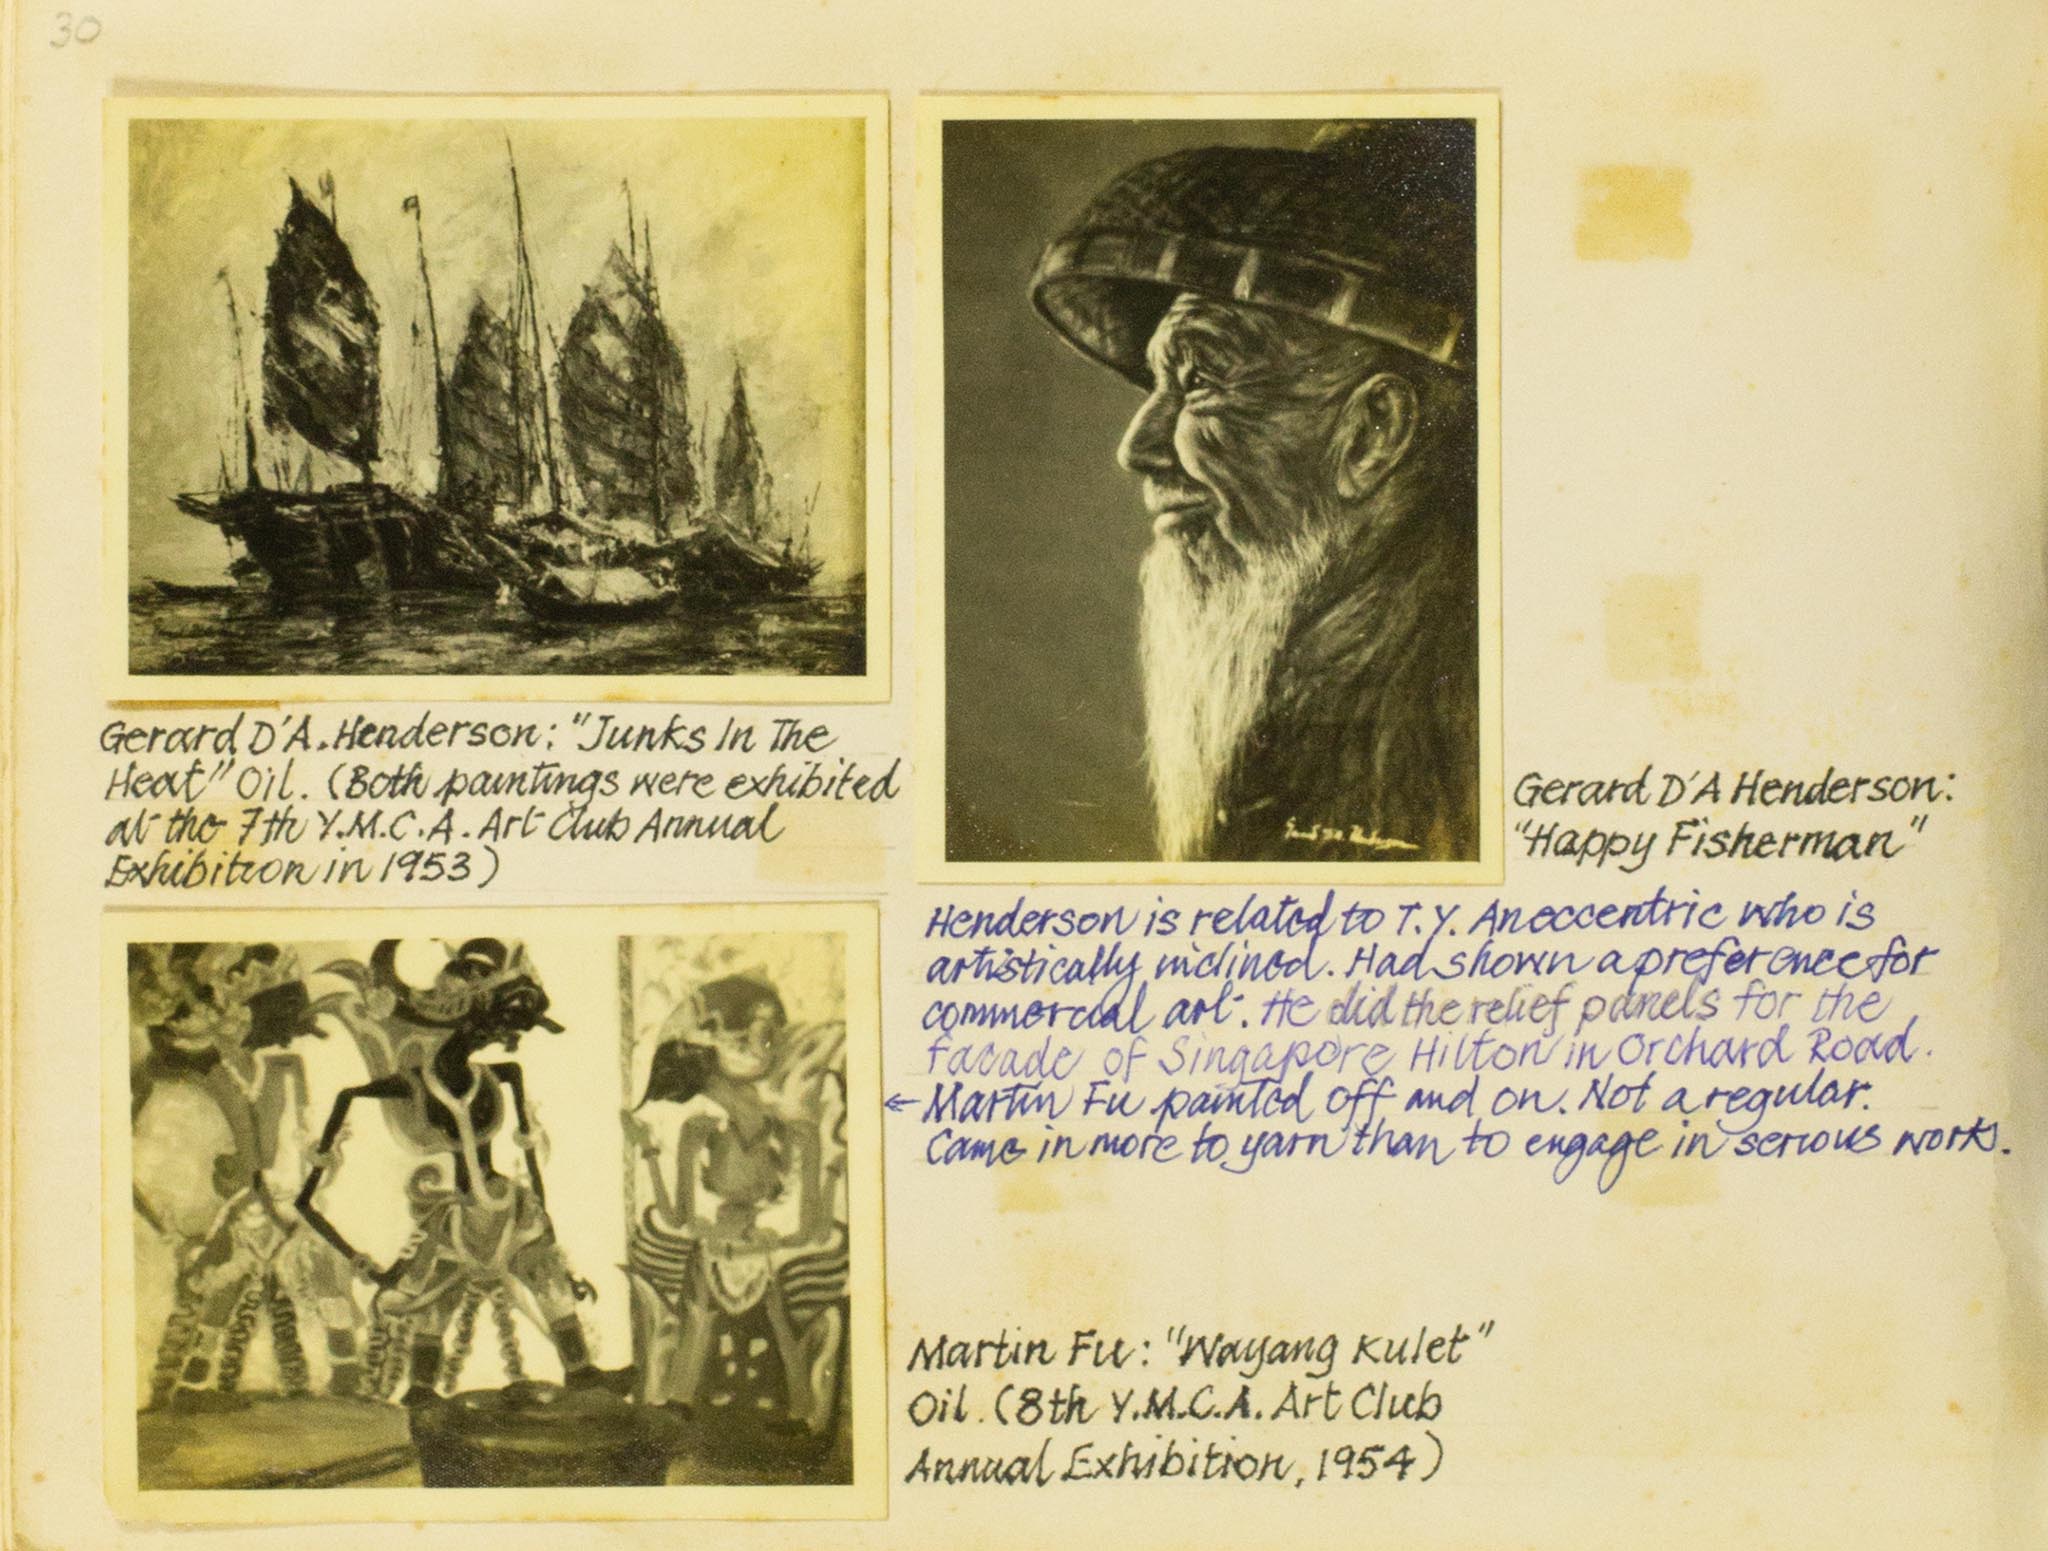 30
Gerard D'A. Henderson: "Junks In The
Heat" Oil. (Both paintings were exhibited
at the 7th Y.M.C.A. Art Club Annual
Exhibition in 1953)
Gerard D'A Henderson:
"Happy Fisherman"
Henderson is related to T.Y. An eccentric who is
artistically inclined. Had shown a preference for
commercial art. He did the relief panels for the
facade of Singapore Hilton in Orchard Road.
← Martin Fu painted off and on. Not a regular.
Came in more to yarn than to engage in serious work.
Martin Fu: "Wayang Kulet"
Oil. (8th Y.M.C.A. Art Club
Annual Exhibition, 1954)